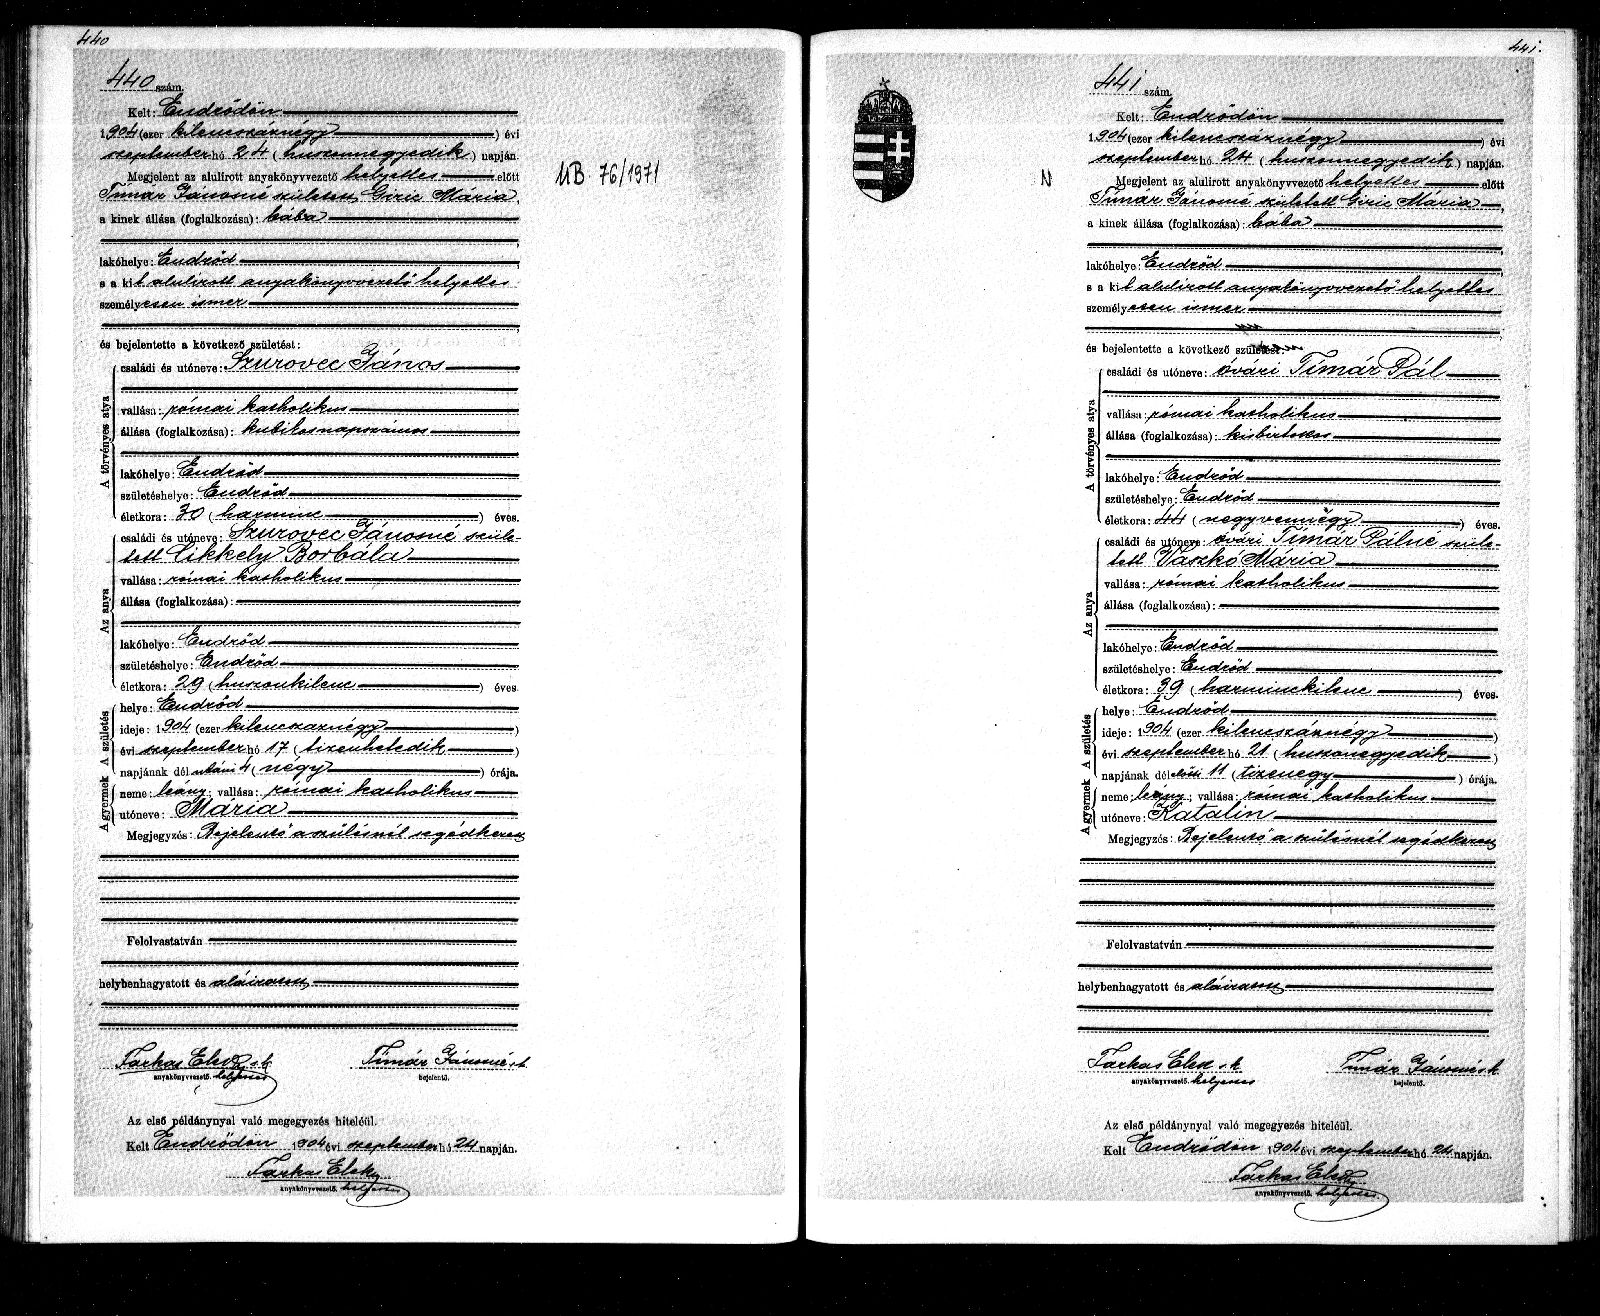 440
440 szám.
Kelt: Endrődön
1904 (ezer kilencszáznégy) évi
szeptember hó 24 (huszonnegyedik) napján.
Megjelent az alulirott anyakönyvvezető helyettes előtt
Tímár Jánosné született Giric Mária,
a kinek állása (foglalkozása): bába
lakóhelye: Endrőd
s a kit alulirott anyakönyvvezető helyettes
személyesen ismer
és bejelentette a következő születést:
A törvényes atya
családi és utóneve: Szurovec János
vallása: római katholikus
állása (foglalkozása): kubikosnapszámos
lakóhelye: Endrőd
születéshelye: Endrőd
életkora: 30 (harminc) éves.
Az anya
családi és utóneve: Szurovec Jánosné szüle-
tett Cikkely Borbála
vallása: római katholikus
állása (foglalkozása):
lakóhelye: Endrőd
születéshelye: Endrőd
életkora: 29 (huszonkilenc) éves
A születés
helye: Endrőd
ideje: 1904 (ezer kilencszáznégy)
évi szeptember hó 17 (tizenhetedik)
napjának dél utáni 4 (négy) órája.
A gyermek
neme: leány; vallása: római katholikus
utóneve: Mária
Megjegyzés: Bejelentő a szülésnél segédkezett
Felolvastatván
helybenhagyatott és aláiratott
Farkas Elek sk Tímár Jánosné sk
anyakönyvvezető. helyettes bejelentő.
Az első példánynyal való megegyezés hiteléül.
Kelt Endrődön 1904 évi szeptember hó 24 napján.
Farkas Elek
anyakönyvvezető. helyettes
MB 76/1971
441.
441 szám.
N
Kelt: Endrődön
1904 (ezer kilencszáznégy) évi
szeptember hó 24 (huszonnegyedik) napján.
Megjelent az alulirott anyakönyvvezető helyettes előtt
Tímár Jánosné született Giric Mária,
a kinek állása (foglalkozása): bába
lakóhelye: Endrőd
s a kit alulirott anyakönyvvezető helyettes
személyesen ismer
és bejelentette a következő születést:
A törvényes atya
családi és utóneve: óvári Tímár Pál
vallása: római katholikus
állása (foglalkozása): kisbirtokos
lakóhelye: Endrőd
születéshelye: Endrőd
életkora: 44 (negyvennégy) éves.
Az anya
családi és utóneve: óvári Tímár Pálné szüle-
tett Vaszkó Mária
vallása: római katholikus
állása (foglalkozása):
lakóhelye: Endrőd
születéshelye: Endrőd
életkora: 39 (harminckilenc) éves.
A születés
helye: Endrőd
ideje: 1904 (ezer kilencszáznégy)
évi szeptember hó 21 (huszonegyedik)
napjának dél előtti 11 (tizenegy) órája.
A gyermek
neme: leány; vallása: római katholikus
utóneve: Katalin
Megjegyzés: Bejelentő a szülésnél segédkezett
Felolvastatván
helybenhagyatott és aláiratott
Farkas Elek sk Tímár Jánosné sk
anyakönyvvezető. helyettes bejelentő.
Az első példánynyal való megegyezés hiteléül.
Kelt Endrődön 1904 évi szeptember hó 24 napján.
Farkas Elek
anyakönyvvezető. helyettes